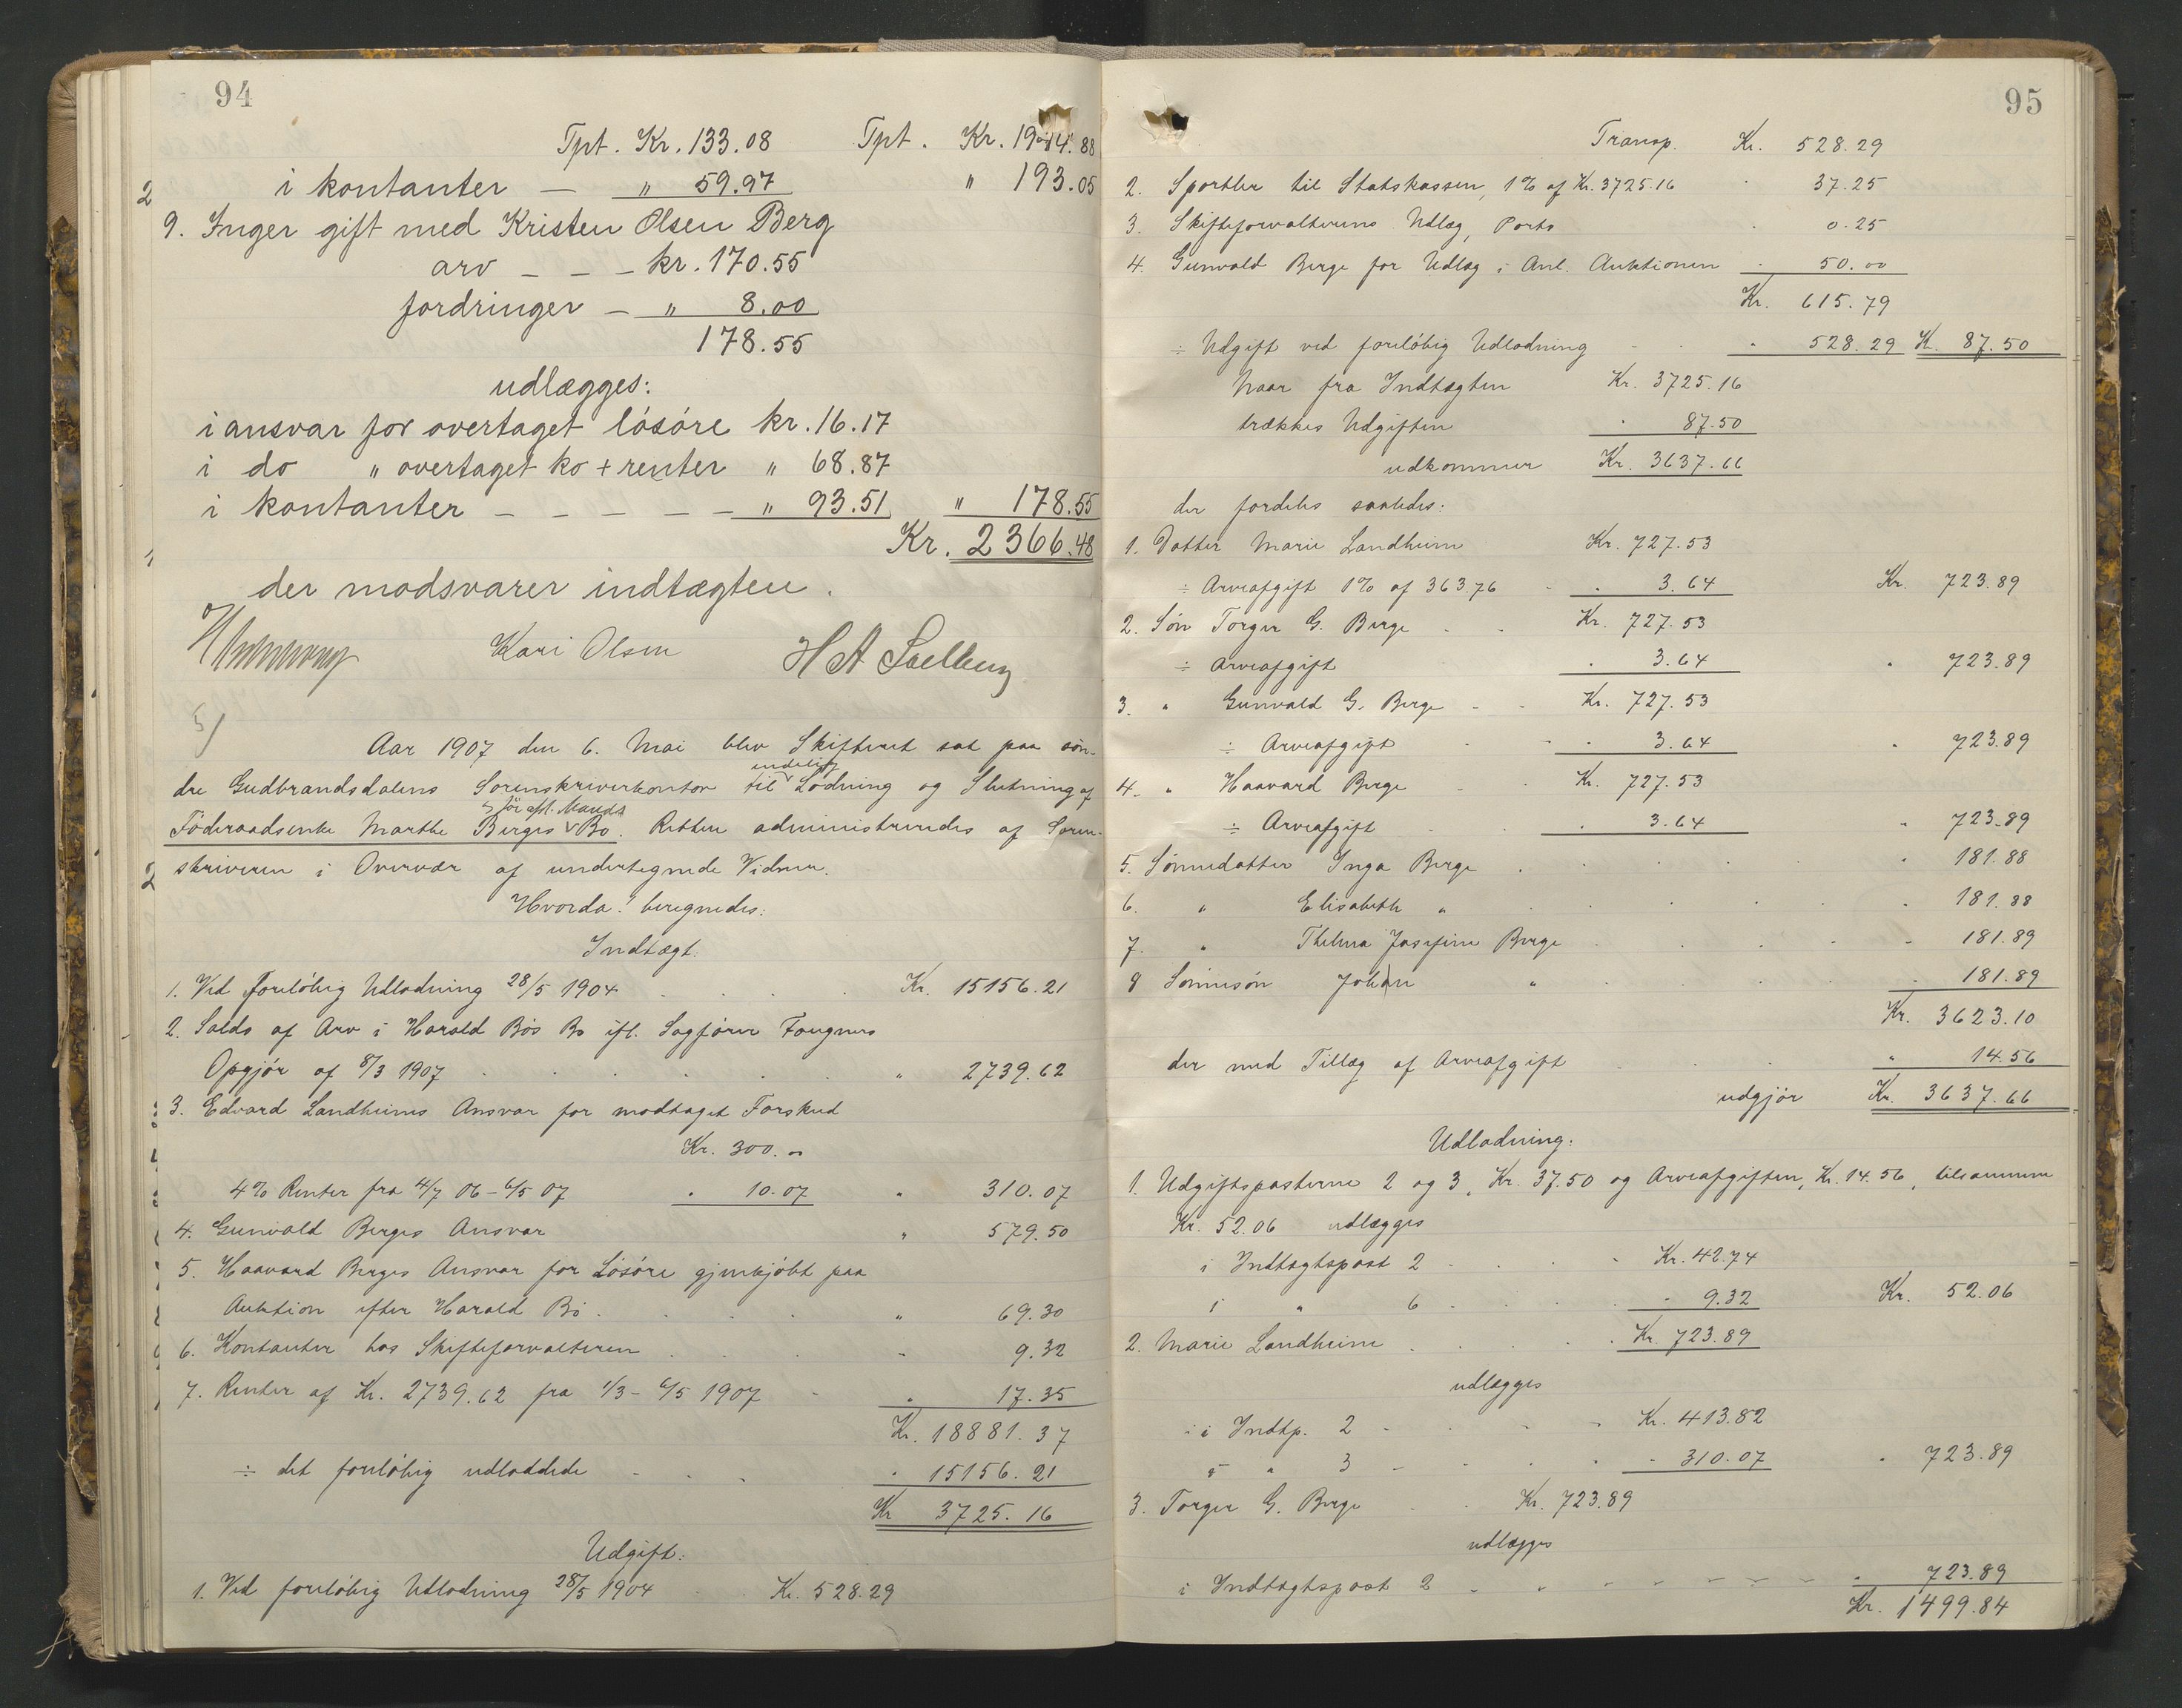 94
Tpt. Kr. 133.08 Tpt. Kr. 1994.88
i kontanter — " 59.97 " 193.05
9. Inger gift med Kristen Olsen Berg
arv - - - kr. 170.55
fordringer - " 8.00
178.55
udlægges:
i ansvar for overtaget lösöre kr. 16.17
i do " overtaget ko + renter " 68.87
i kontanter - - - - - " 93.51 " 178.55
Kr. 2366.48
der modsvarer indtægten.
Kari Olsen
5/
Aar 1907 den 6. Mai blev Skifteret sat paa søn-
dre Gudbrandsdalens Sorenskriverkontor til endelig Lodning og Slutning af
Föderaadsenke Marthe Berges & för afd. Mands Bo. Retten administreredes af Soren-
skriveren i Overvær af undertegnede Vidner.
Hvorda! beregnedes:
Indtægt:
1. Ved foreløbig Udlodning 28/5 1904 . . . Kr. 15156.21
2. Saldo af Arv i Harald Bös Bo ifl. Sagfører Fougners
Opgjör af 8/3 1907 . . . . . " 2739.62
3. Edvard Landheims Ansvar for modtaget Forskud
Kr. 300.00
4% Renter fra 4/7 06 - 6/5 07 " 10.07 " 310.07
4. Gunvald Berges Ansvar " 579.50
5. Haavard Berges Ansvar for Lösöre gjenkjöbt paa
Auktion efter Harald Bö . . . " 69.30
6. Kontanter hos Skifteforvalteren . . . " 9.32
7. Renter af Kr. 2739.62 fra 1/3 - 6/5 1907 - " 17.35
Kr. 18881.37
÷ det foreløbig udloddede - . . " 15156.21
Kr 3725.16
Udgift:
1. Ved foreløbig Udlodning 28/5 1904 Kr. 528.29
95
Transp. Kr. 528.29
2. Sportler til Statskassen, 1% af Kr. 3725.16 " 37.25
3. Skifteforvalterens Udlæg, Porto " 0.25
4. Gunvald Berge for Udlæg i Anl. Auktionen " 50.00
Kr. 615.79
÷ Udgift ved foreløbig Udlodning - - " 528.29 K. 87.50
Naar fra Indtægten Kr. 3725.16
trækkes Udgiften " 87.50
udkommer Kr. 3637.66
der fordeles saaledes:
1. Datter Marie Landheim Kr. 727.53
÷ Arveafgift 1% af 363.76 - " 3.64 Kr. 723.89
2. Søn Torger G. Berge - - Kr. 727.53
÷ Arveafgift " 3.64 " 723.89
3. " Gunvald G. Berge - - Kr. 727.53
÷ Arveafgift - - " 3.64 " 723.89
4. " Haavard Berge - - Kr. 727.53
÷ Arveafgift . . " 3.64 " 723.89
5. Sønnedatter Inga Berge . . . . " 181.88
6. " Elisabeth " . . . . " 181.88
7. " Thelma Josefine Berge . . . " 181.89
8 Sønnesøn Johan " . . . " 181.89
Kr. 3623.10
der med Tillæg af Arveafgift . . " 14.56
udgjör Kr. 3637.66
Udlodning:
1. Udgiftsposterne 2 og 3, Kr. 37.50 og Arveafgiften, Kr. 14.56, tilsammen
Kr. 52.06 udlægges
i Indtægtspost 2 - . . Kr. 42.74
i " 6 . . . " 9.32 Kr. 52.06
2. Marie Landheim . . . Kr. 723.89
udlægges
i Indtp. 2 - . . Kr. 413.82
i " 3 - . . " 310.07 " 723.89
3. Torger G. Berge . . Kr. 723.89
udlægges
i Indtægtspost 2 - - - - - - " 723.89
Kr. 1499.84